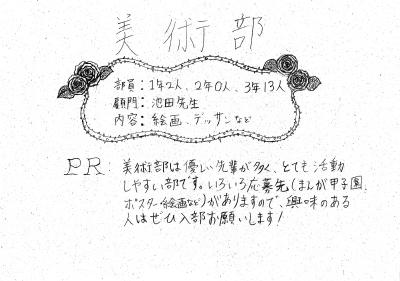 美術部
部員：1年2人、2年0人、3年13人
顧問：池田先生
内容：絵画、デッサンなど
PR：美術部は優しい先輩が多く、とても活動
しやすい部です。いろいろ応募先(まんが甲子園、
ポスター・絵画など)がありますので、興味のある
人はぜひ入部お願いします！